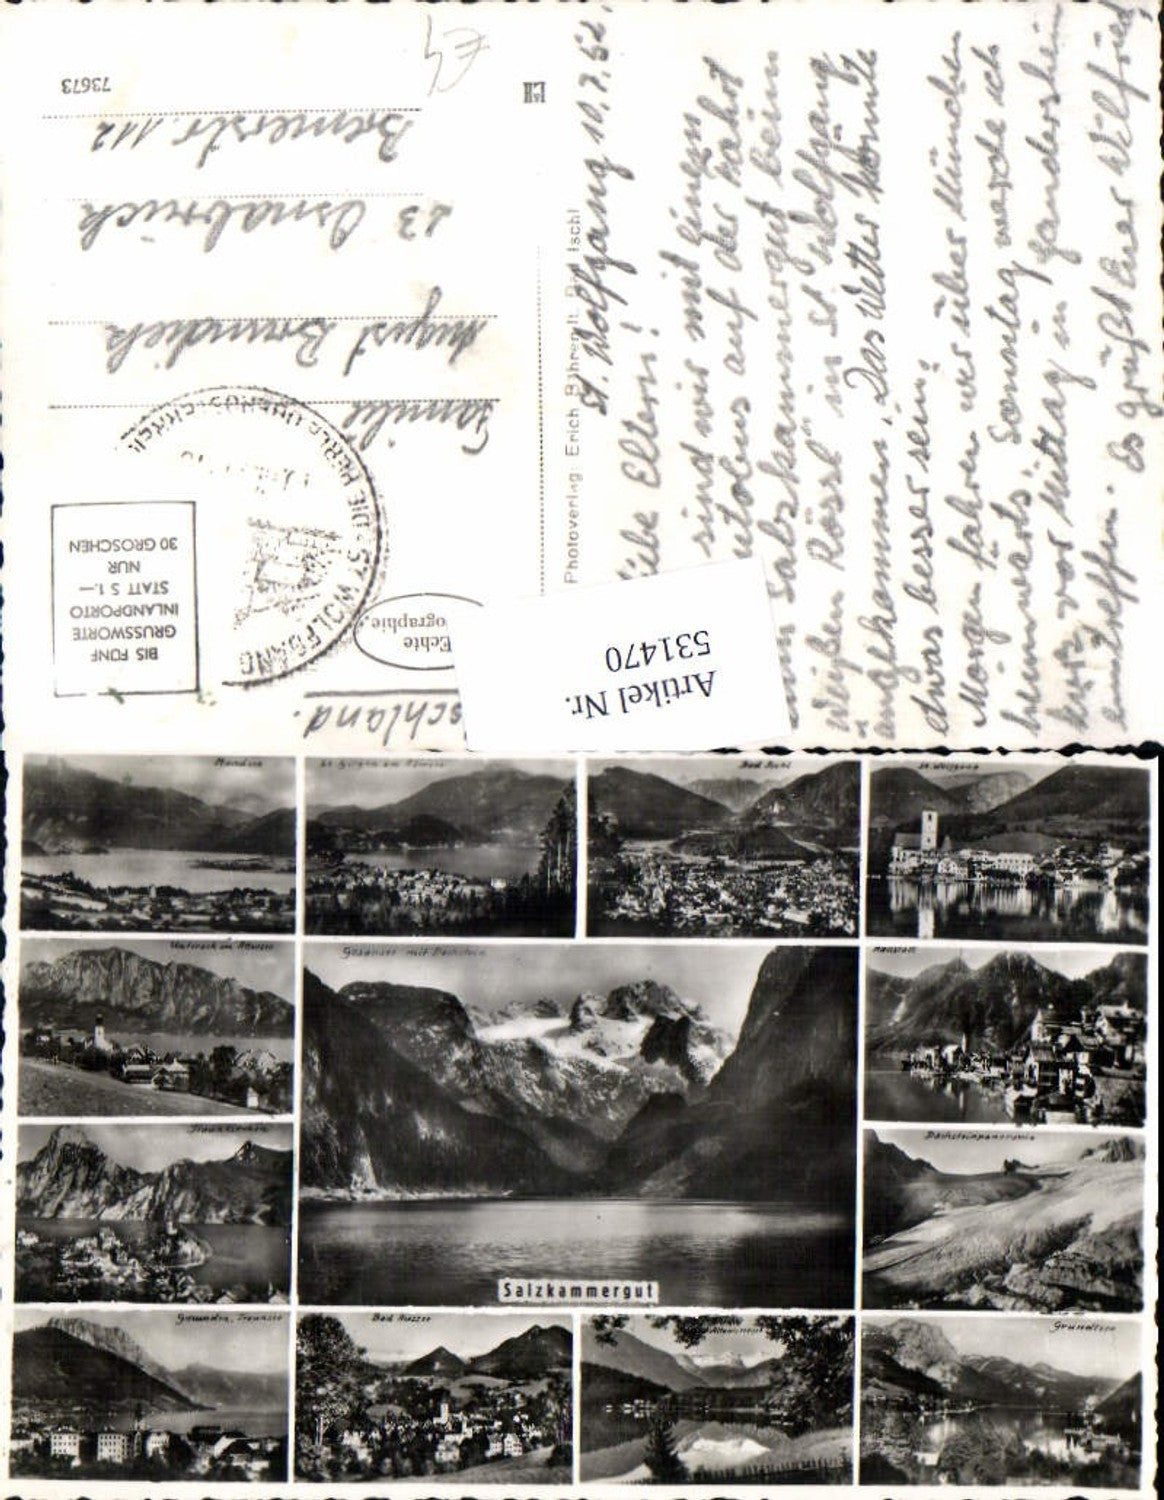 St. Wolfgang 10.7.62.
Liebe Eltern!
sind wir mit einem
auf der
zum Salzkammergut beim
Weißen Rössl in St. Wolfgang
angekommen. Das Wetter könnte
etwas besser sein.
Morgen fahren wir über München
heimwärts. Sonntag werde ich
kurz vor Mittag in Gandersheim
eintreffen. Es grüßt Euer Wilfried
Photoverlag: Erich Bährendt, Bad Ischl
73673
Familie
August Brundiek
23 Osnabrück
112
schland.
BIS FÜNF
GRUSSWORTE
INLANDPORTO
STATT S 1.—
NUR
30 GROSCHEN
ST. WOLFGANG
Echte
ographie
Artikel Nr.
531470
Mondsee
Bad Ischl
St. Wolfgang
Unterach am Attersee
Gosausee mit Dachstein
Hallstatt
Traunkirchen
Dachsteinpanorama
Salzkammergut
Gmunden, Traunsee
Bad Aussee
Grundlsee